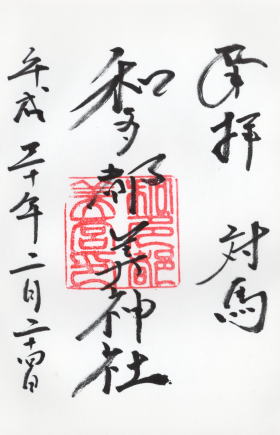 奉拝 対馬
和多都美神社
平成三十年二月二十四日